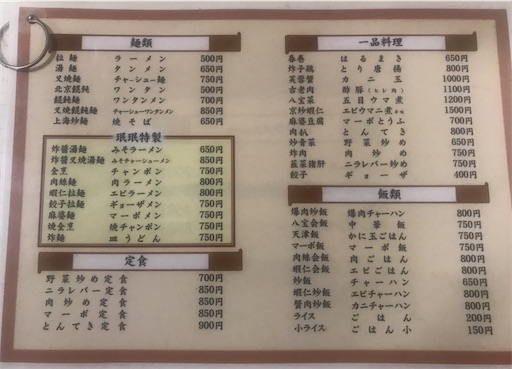 麺類
拉麺 ラーメン 500円
湯麺 タンメン 650円
叉焼麺 チャーシュー麺 750円
北京餛飩 ワンタン 500円
餛飩麺 ワンタンメン 700円
叉焼餛飩麺 チャーシューワンタンメン 850円
上海炒麺 焼そば 650円
珉珉特製
炸醤湯麺 みそラーメン 650円
炸醤叉焼湯麺 みそチャーシューメン 850円
会烹 チャンポン 750円
肉絲麺 肉ラーメン 800円
蝦仁拉麺 エビラーメン 800円
餃子拉麺 ギョーザメン 750円
麻婆麺 マーボメン 750円
焼会烹 焼チャンポン 750円
炸麺 皿うどん 750円
定食
野菜炒め定食 700円
ニラレバー定食 850円
肉炒め定食 850円
マーボ定食 850円
とんてき定食 900円
一品料理
春巻 はるまき 650円
炸子鶏 とり唐揚 800円
芙蓉蟹 カニ玉 1000円
古老肉 酢豚(ヒレ肉) 1100円
八宝菜 五目ウマ煮 1200円
京炒蝦仁 エビウマニ煮 1500円
麻婆豆腐 マーボとうふ 700円
肉扒 とんてき 800円
炒青菜 野菜炒め 650円
炸肉 肉炒め 750円
韮菜猪肝 ニラレバー炒め 750円
餃子 ギョーザ 400円
飯類
爆肉炒飯 爆肉チャーハン 800円
八宝会飯 中華飯 750円
天津飯 かに玉ごはん 750円
マーボ飯 マーボ飯 750円
肉絲会飯 肉ごはん 800円
蝦仁会飯 エビごはん 800円
炒飯 チャーハン 650円
蝦仁炒飯 エビチャーハン 800円
蟹肉炒飯 カニチャーハン 800円
ライス ごはん 200円
小ライス ごはん小 150円